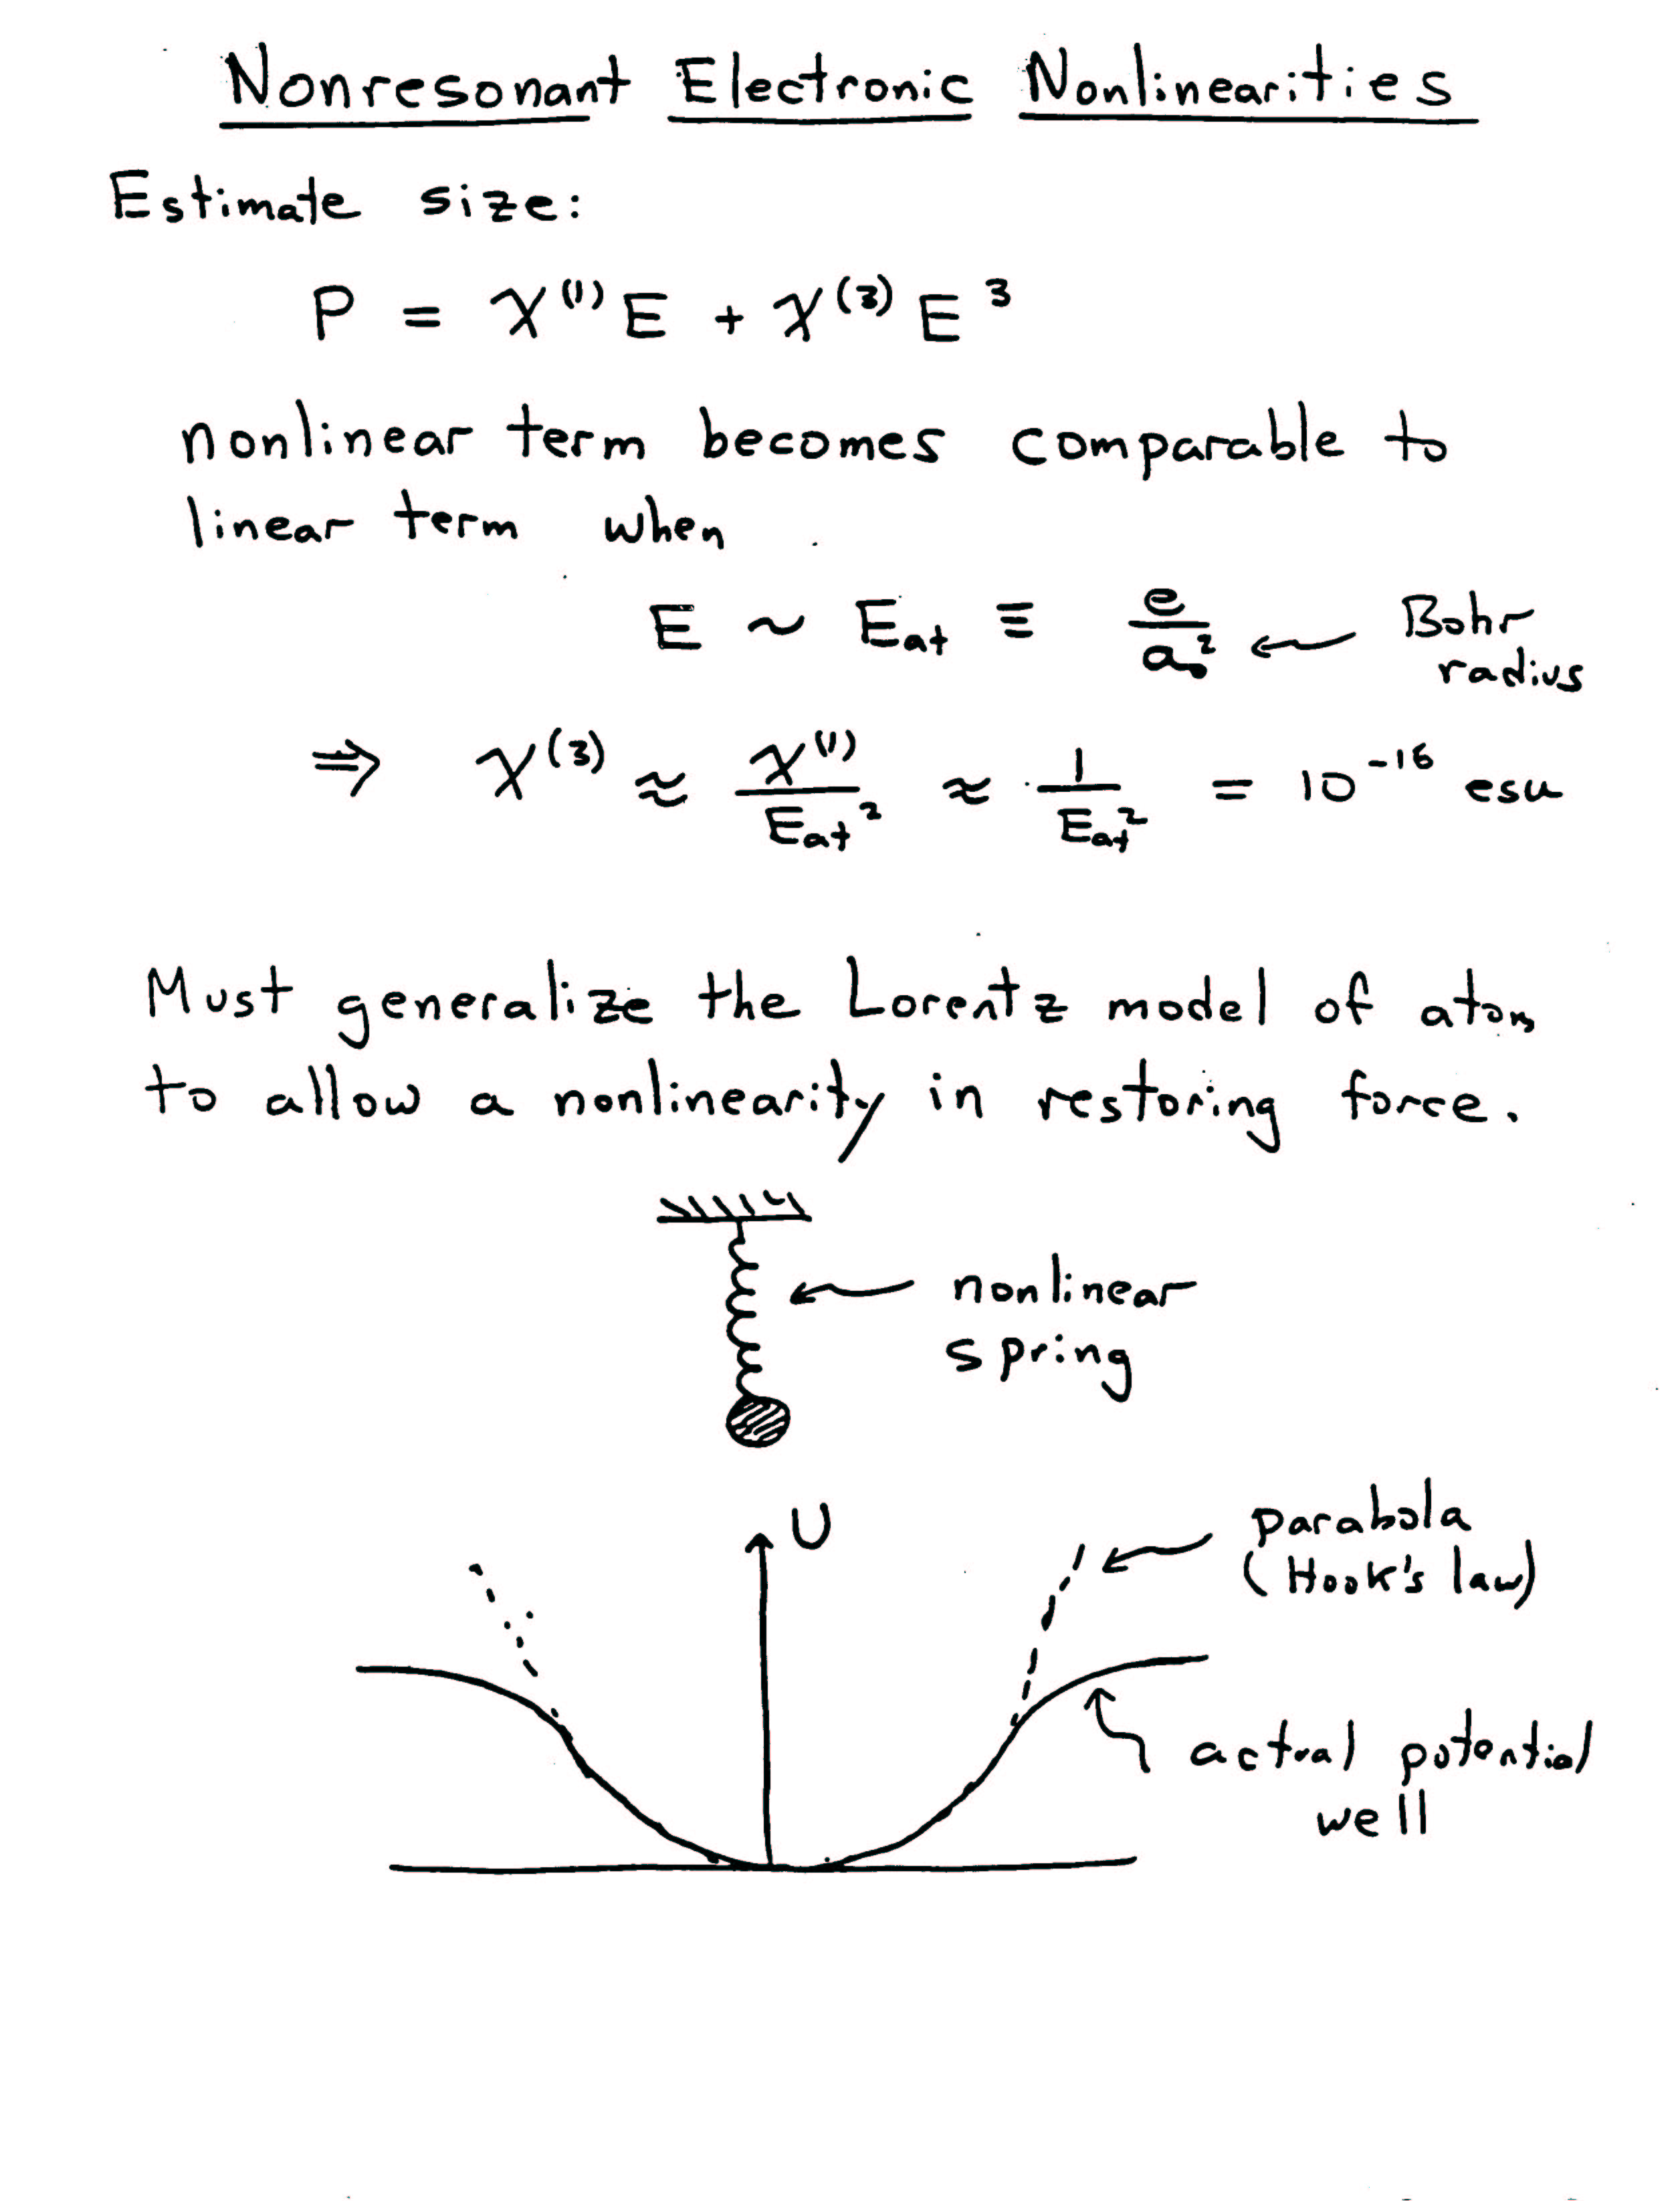 Nonresonant Electronic Nonlinearities
Estimate size:
P = χ⁽¹⁾ E + χ⁽³⁾ E³
nonlinear term becomes comparable to
linear term when
E ~ E_at ≡ e/a₀² ← Bohr
radius
⇒ χ⁽³⁾ ≈ χ⁽¹⁾/E_at² ≈ 1/E_at² = 10⁻¹⁶ esu
Must generalize the Lorentz model of atom
to allow a nonlinearity in restoring force.
← nonlinear
spring
U
parabola
(Hook's law)
actual potential
well